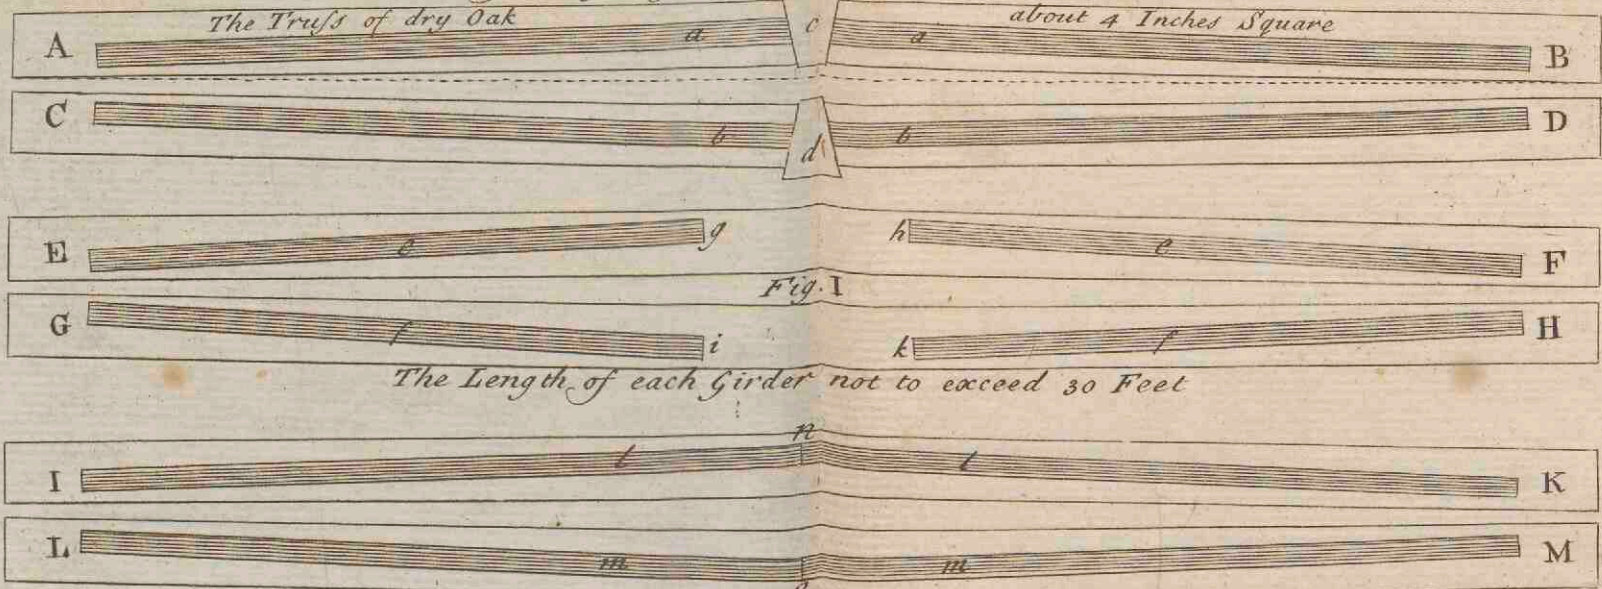 The Truſs of dry Oak about 4 Inches Square
A a c a B
C b d b D
E e g h e F
Fig. I
G f i k f H
The Length of each Girder not to exceed 30 Feet
n
I l l K
L m m M